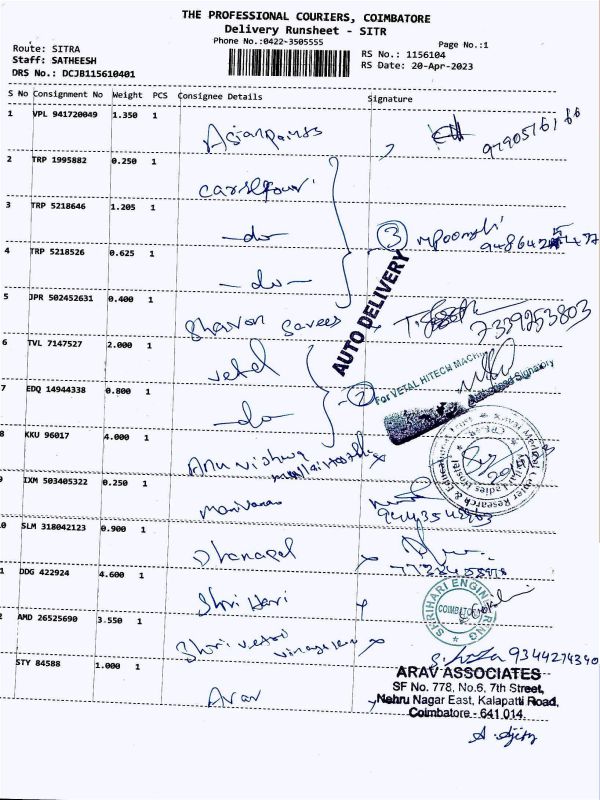 THE PROFESSIONAL COURIERS, COIMBATORE
Delivery Runsheet - SITR
Phone No.:0422-3505555
Page No.:1
Route: SITRA
RS No.: 1156104
Staff: SATHEESH
RS Date: 20-Apr-2023
DRS No.: DCJB115610401
S No Consignment No Weight PCS Consignee Details Signature
1 VPL 941720049 1.350 1 Asian paints
2 TRP 1995882 0.250 1 Carrefour
3 TRP 5218646 1.205 1 -do- 3
4 TRP 5218526 0.625 1 -do-
AUTO DELIVERY
5 JPR 502452631 0.400 1 Sharon Sarees 7339253803
6 TVL 7147527 2.000 1 Vetal
For VETAL HITECH Machin
Authorised Signatory
7 EDQ 14944338 0.800 1 -do- 2
8 KKU 96017 4.000 1 Anu Vishwa
9 IXM 503405322 0.250 1 Manivanan
0 SLM 318042123 0.900 1 Dhanapal
1 DDG 422924 4.600 1 Shri Hari
SHRIHARI ENGINEERING
COIMBATORE
2 AMD 26525690 3.550 1 Shri Vetri Vinayaka 9344274340
STY 84588 1.000 1 Arav
ARAV ASSOCIATES
SF No. 778, No.6, 7th Street,
Nehru Nagar East, Kalapatti Road,
Coimbatore - 641 014.